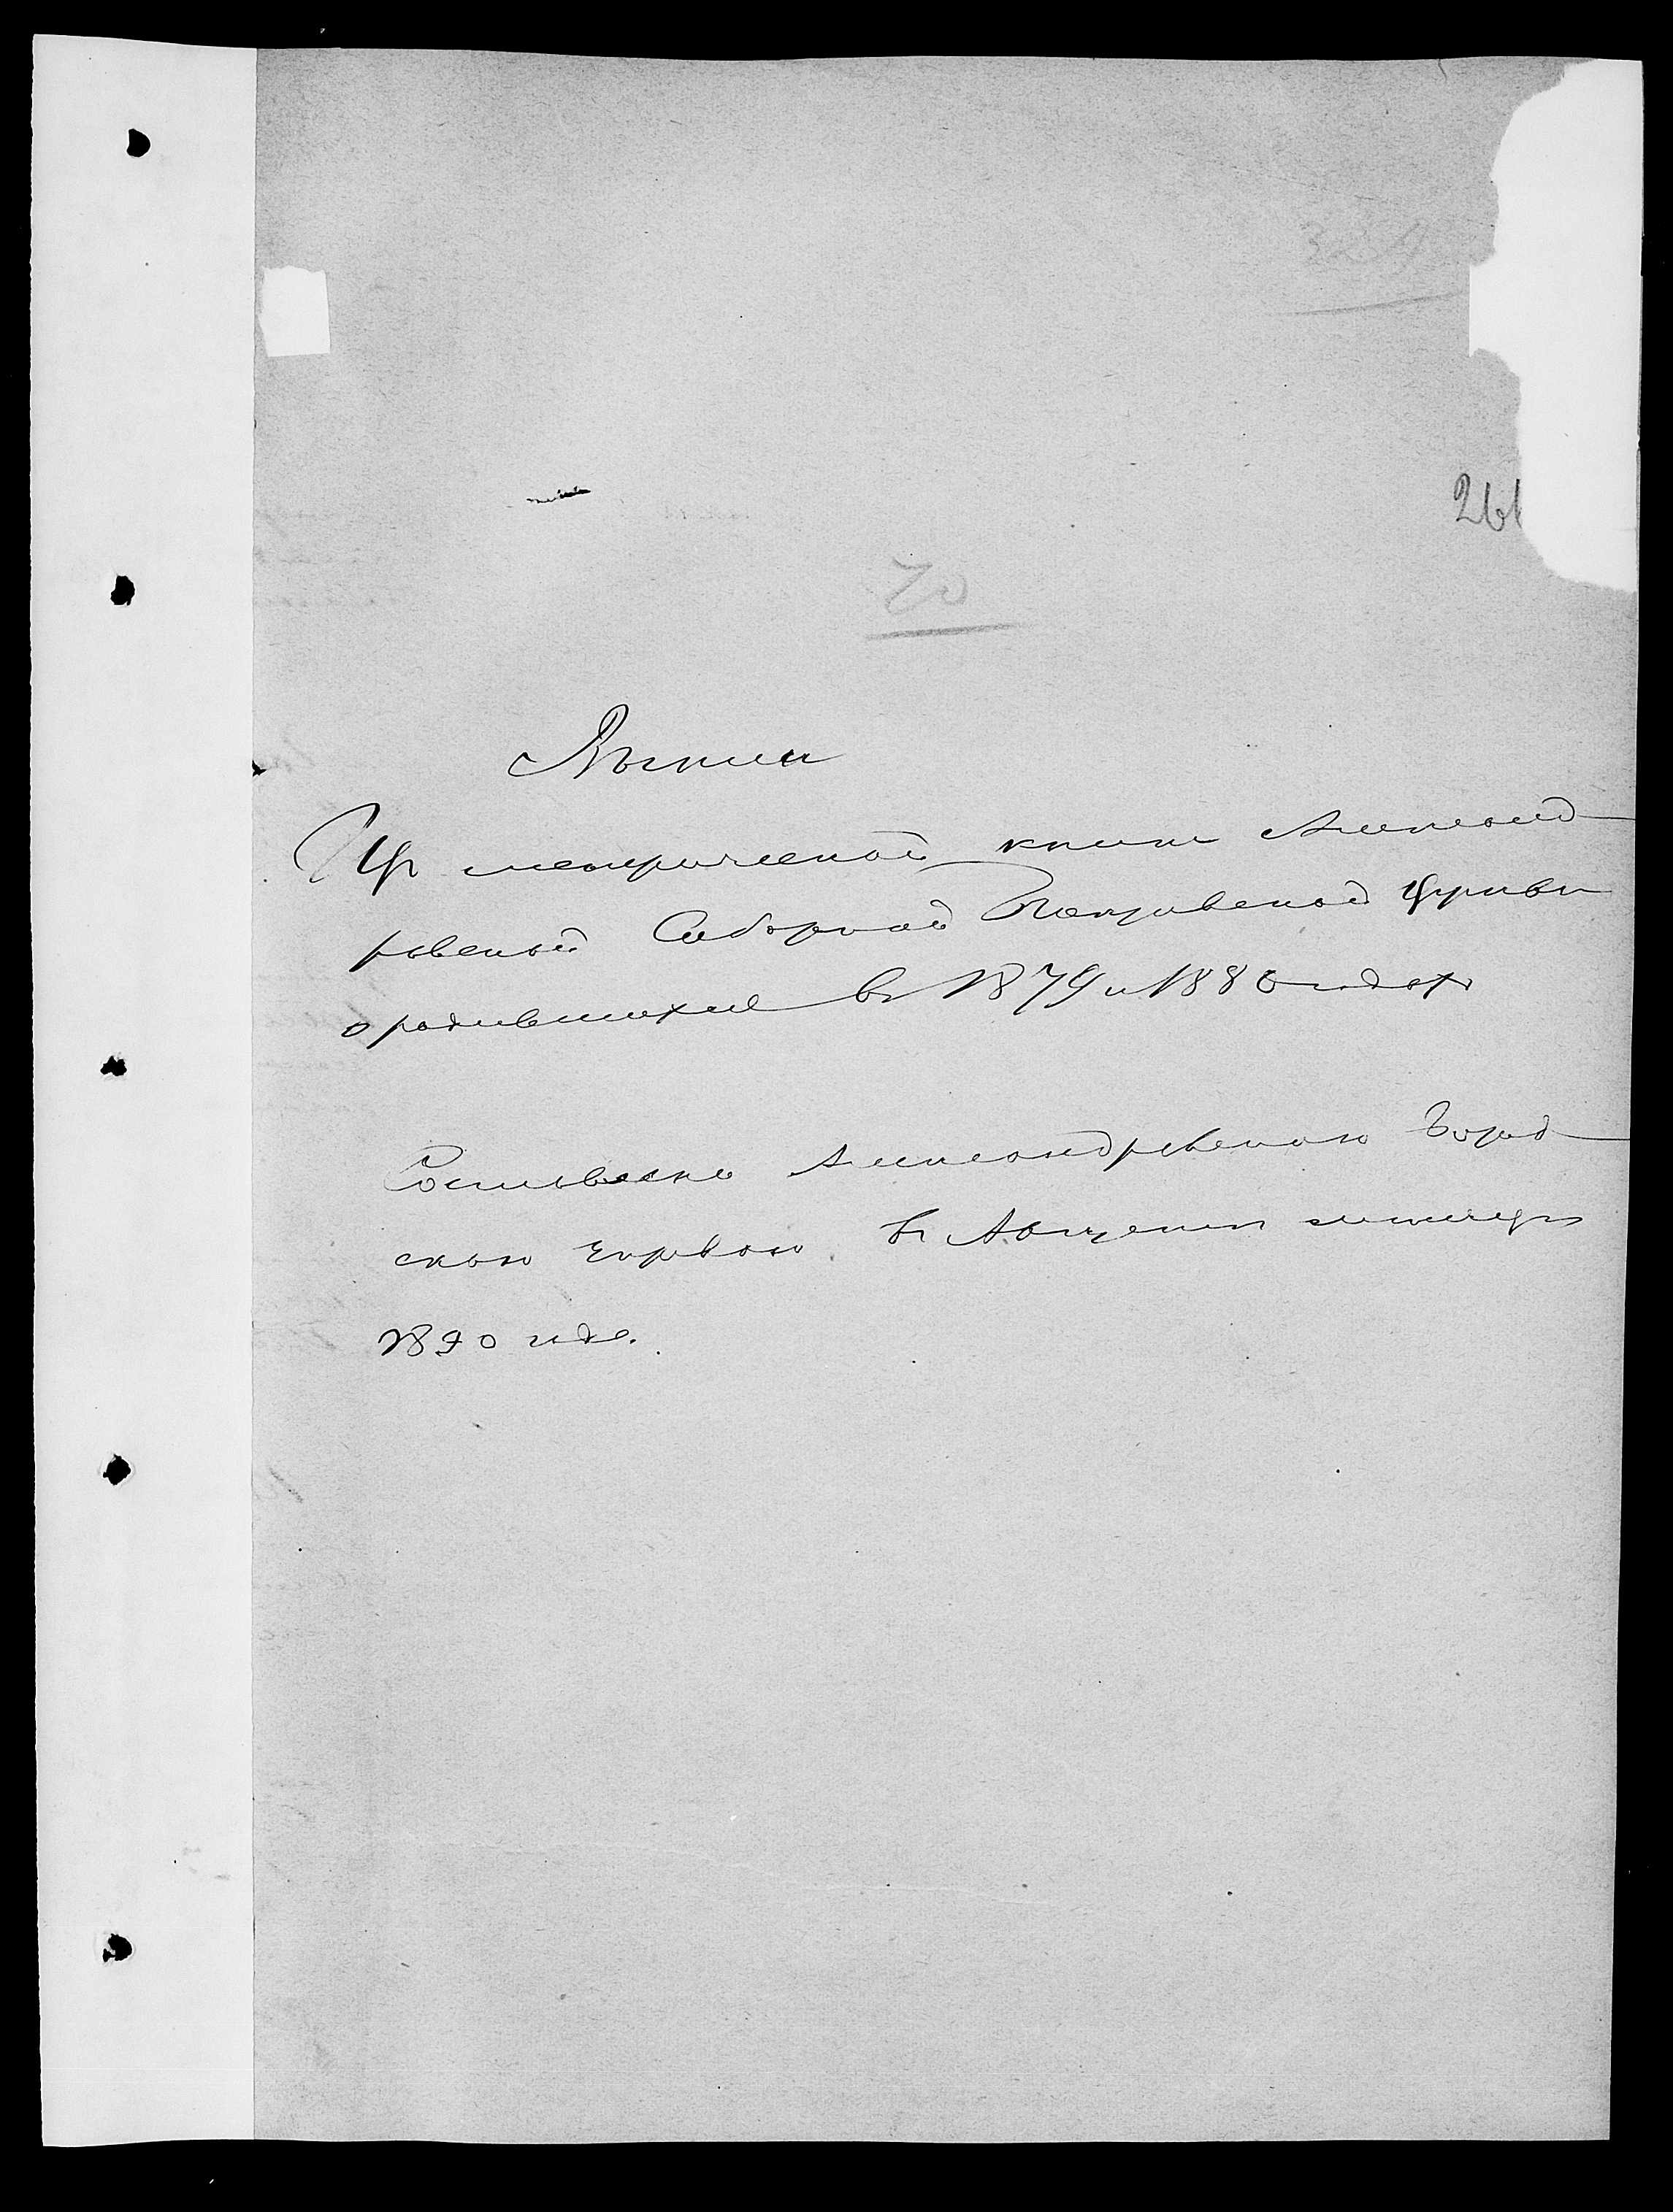 261
70
Выписи
Из метрической книги Александ
ровской Соборной Покровской церкви
о родившихся въ 1879 и 1880 годахъ
Составлена Александровскою Город
скою Управою въ Августѣ месяцѣ
1890 года.